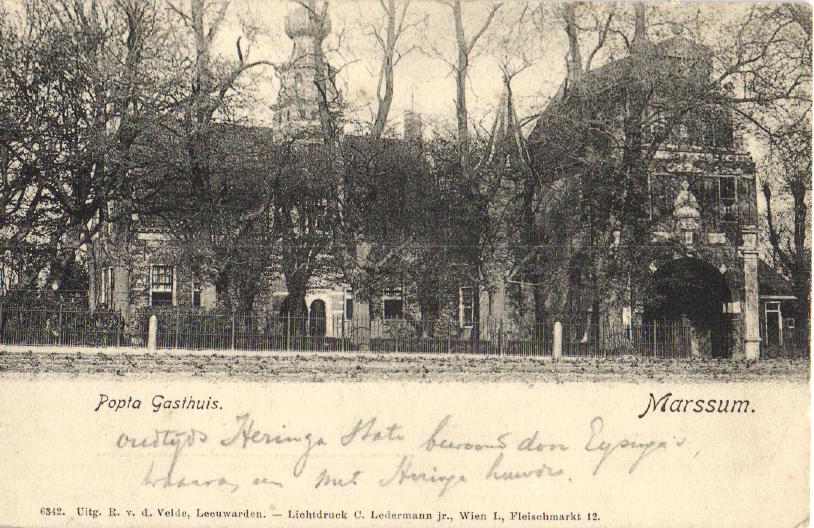 Popta Gasthuis.
Marssum.
oudtyds Heringa State bewoond door Eysinga's,
waarvan een met Heringa huwde.
6342. Uitg. R. v. d. Velde, Leeuwarden. — Lichtdruck C. Ledermann jr., Wien I., Fleischmarkt 12.